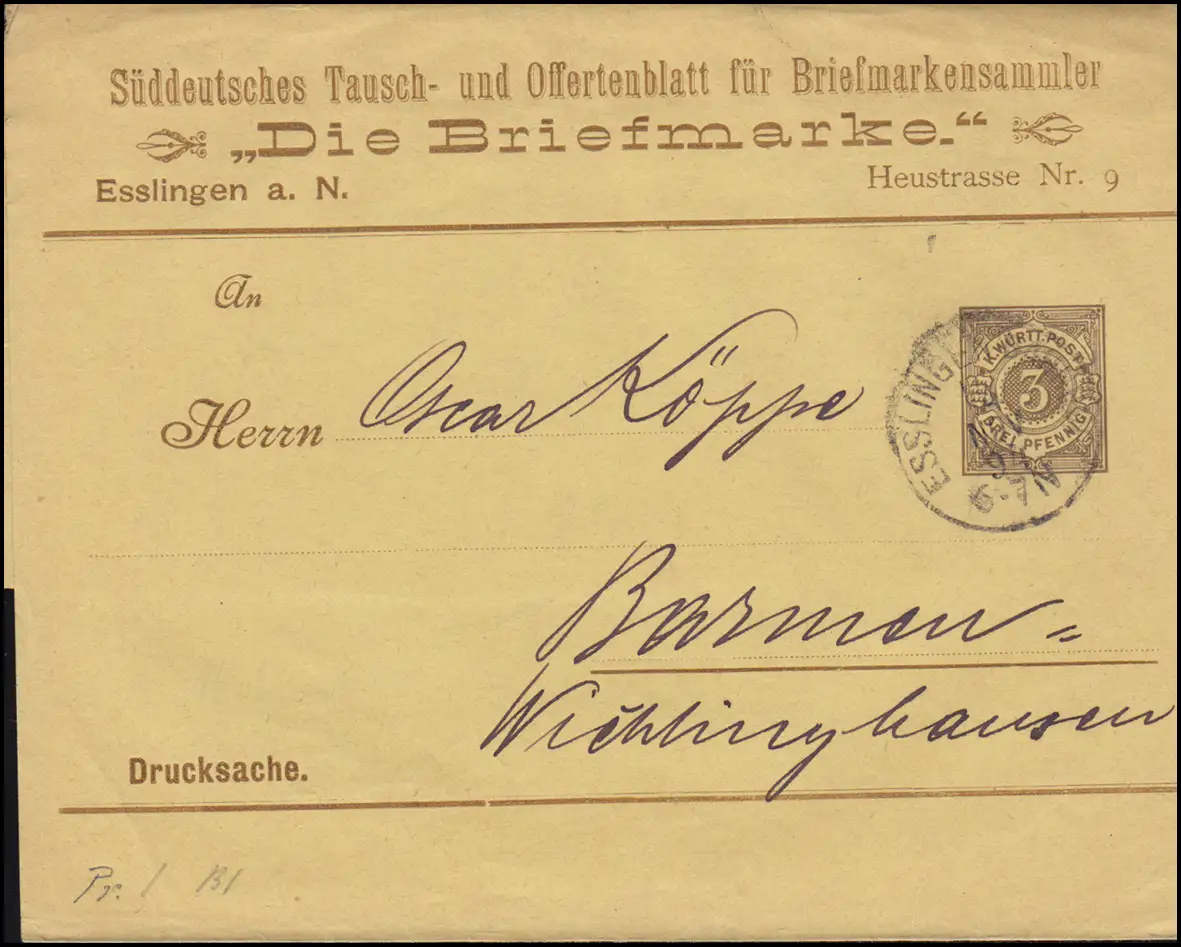 Süddeutsches Tausch- und Offertenblatt für Briefmarkensammler
„Die Briefmarke.“
Esslingen a. N. Heustrasse Nr. 9
An
K. WÜRTT. POST
3
DREI PFENNIG
ESSLINGE
Herrn Oscar Köppe
Barmen =
Wichlinghausen
Drucksache.
Pr. 1